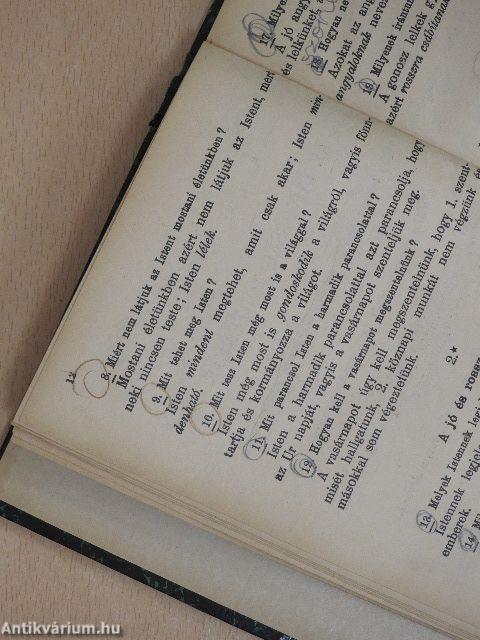 12
8. Miért nem látjuk az Istent mostani életünkben?
Mostani életünkben azért nem látjuk az Istent, mert
neki nincsen teste; Isten lélek.
9. Mit tehet meg Isten?
Isten mindent megtehet, amit csak akar; Isten min-
denható.
10. Mit tesz Isten még most is a világgal?
Isten még most is gondoskodik a világról, vagyis fönn-
tartja és kormányozza a világot.
11. Mit parancsol Isten a harmadik parancsolattal?
Isten a harmadik parancsolattal azt parancsolja, hogy
az Úr napját, vagyis a vasárnapot szenteljük meg.
12. Hogyan kell a vasárnapot megszentelnünk?
A vasárnapot úgy kell megszentelnünk, hogy 1. szent-
misét hallgatunk, 2. köznapi munkát nem végzünk és
másokkal sem végeztetünk.
2.*
A jó és rossz
13. Melyek Istennek legj
Istennek legjele
emberek.
14. Mi
17. Milye
A jó angy
és lelkünket
18. Hogyan ne
Azokat az ang
angyaloknak neve
19. Milyenek irántun
A gonosz lelkek g
azért rosszra csábítanak
Antikvárium.hu